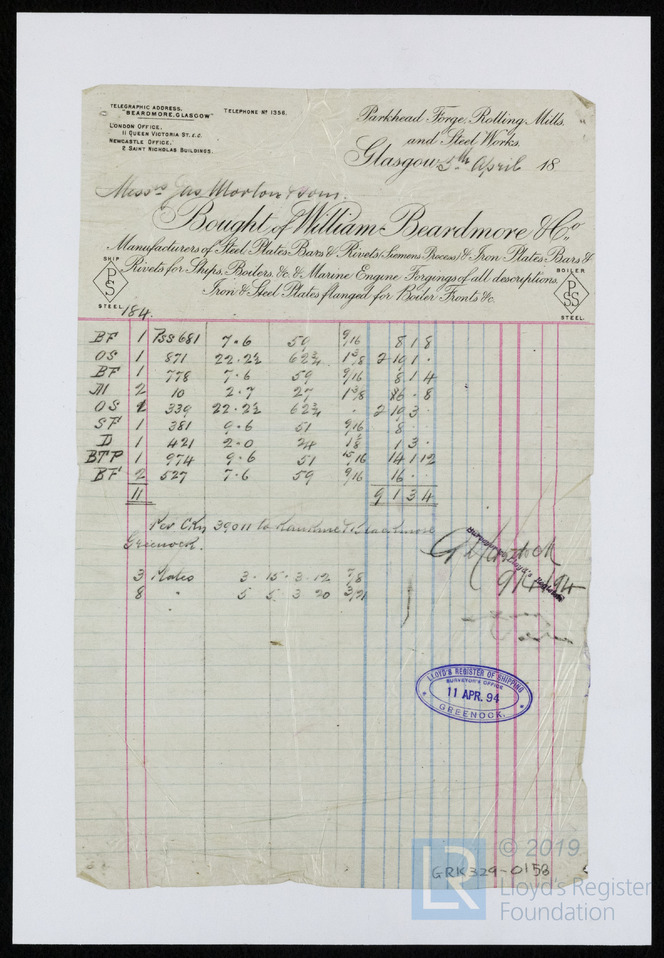 TELEGRAPHIC ADDRESS.
"BEARDMORE, GLASGOW"
TELEPHONE Nº 1356.
LONDON OFFICE,
11 QUEEN VICTORIA ST. E.C.
NEWCASTLE OFFICE,
2 SAINT NICHOLAS BUILDINGS.
Parkhead Forge, Rolling Mills,
and Steel Works.
Glasgow, 5th April 18
Messrs Jas Morton & Son.
Bought of William Beardmore & Co.,
Manufacturers of Steel Plates Bars & Rivets, (Siemens Process) & Iron Plates Bars &
Rivets for Ships, Boilers, &c. & Marine Engine Forgings of all descriptions.
Iron & Steel Plates flanged for Boiler Fronts &c.
SHIP
PS
STEEL.
BOILER
PSS
STEEL.
184.
BF 1 PSS 681 7.6 59 9/16 8 1 8
OS 1 871 22.2½ 62¾ 1⅜ 2 10 1 .
BF 1 778 7.6 59 9/16 8 1 4
M 2 10 2.7 27 1⅜ 8
OS 339 22.2½ 62¾ . 2 10 3 .
SF 1 381 9.6 51 9/16 8 . .
D 1 421 2.0 24 1 3 .
BTP 1 974 9.6 51 15/16 14 1 12
BF 2 527 7.6 59 9/16 16 . .
11 9 1 3 4
Per C.Ry 39011 to Rankine & Blackmore
Greenock.
3 Plates 3. 15. 3. 12 7/8
8 " 5 5 3 20
9/4/94
LLOYD'S REGISTER OF SHIPPING
SURVEYOR'S OFFICE
11 APR. 94
GREENOCK.
GRK329-0158
LR
© 2019
Lloyd's Register
Foundation